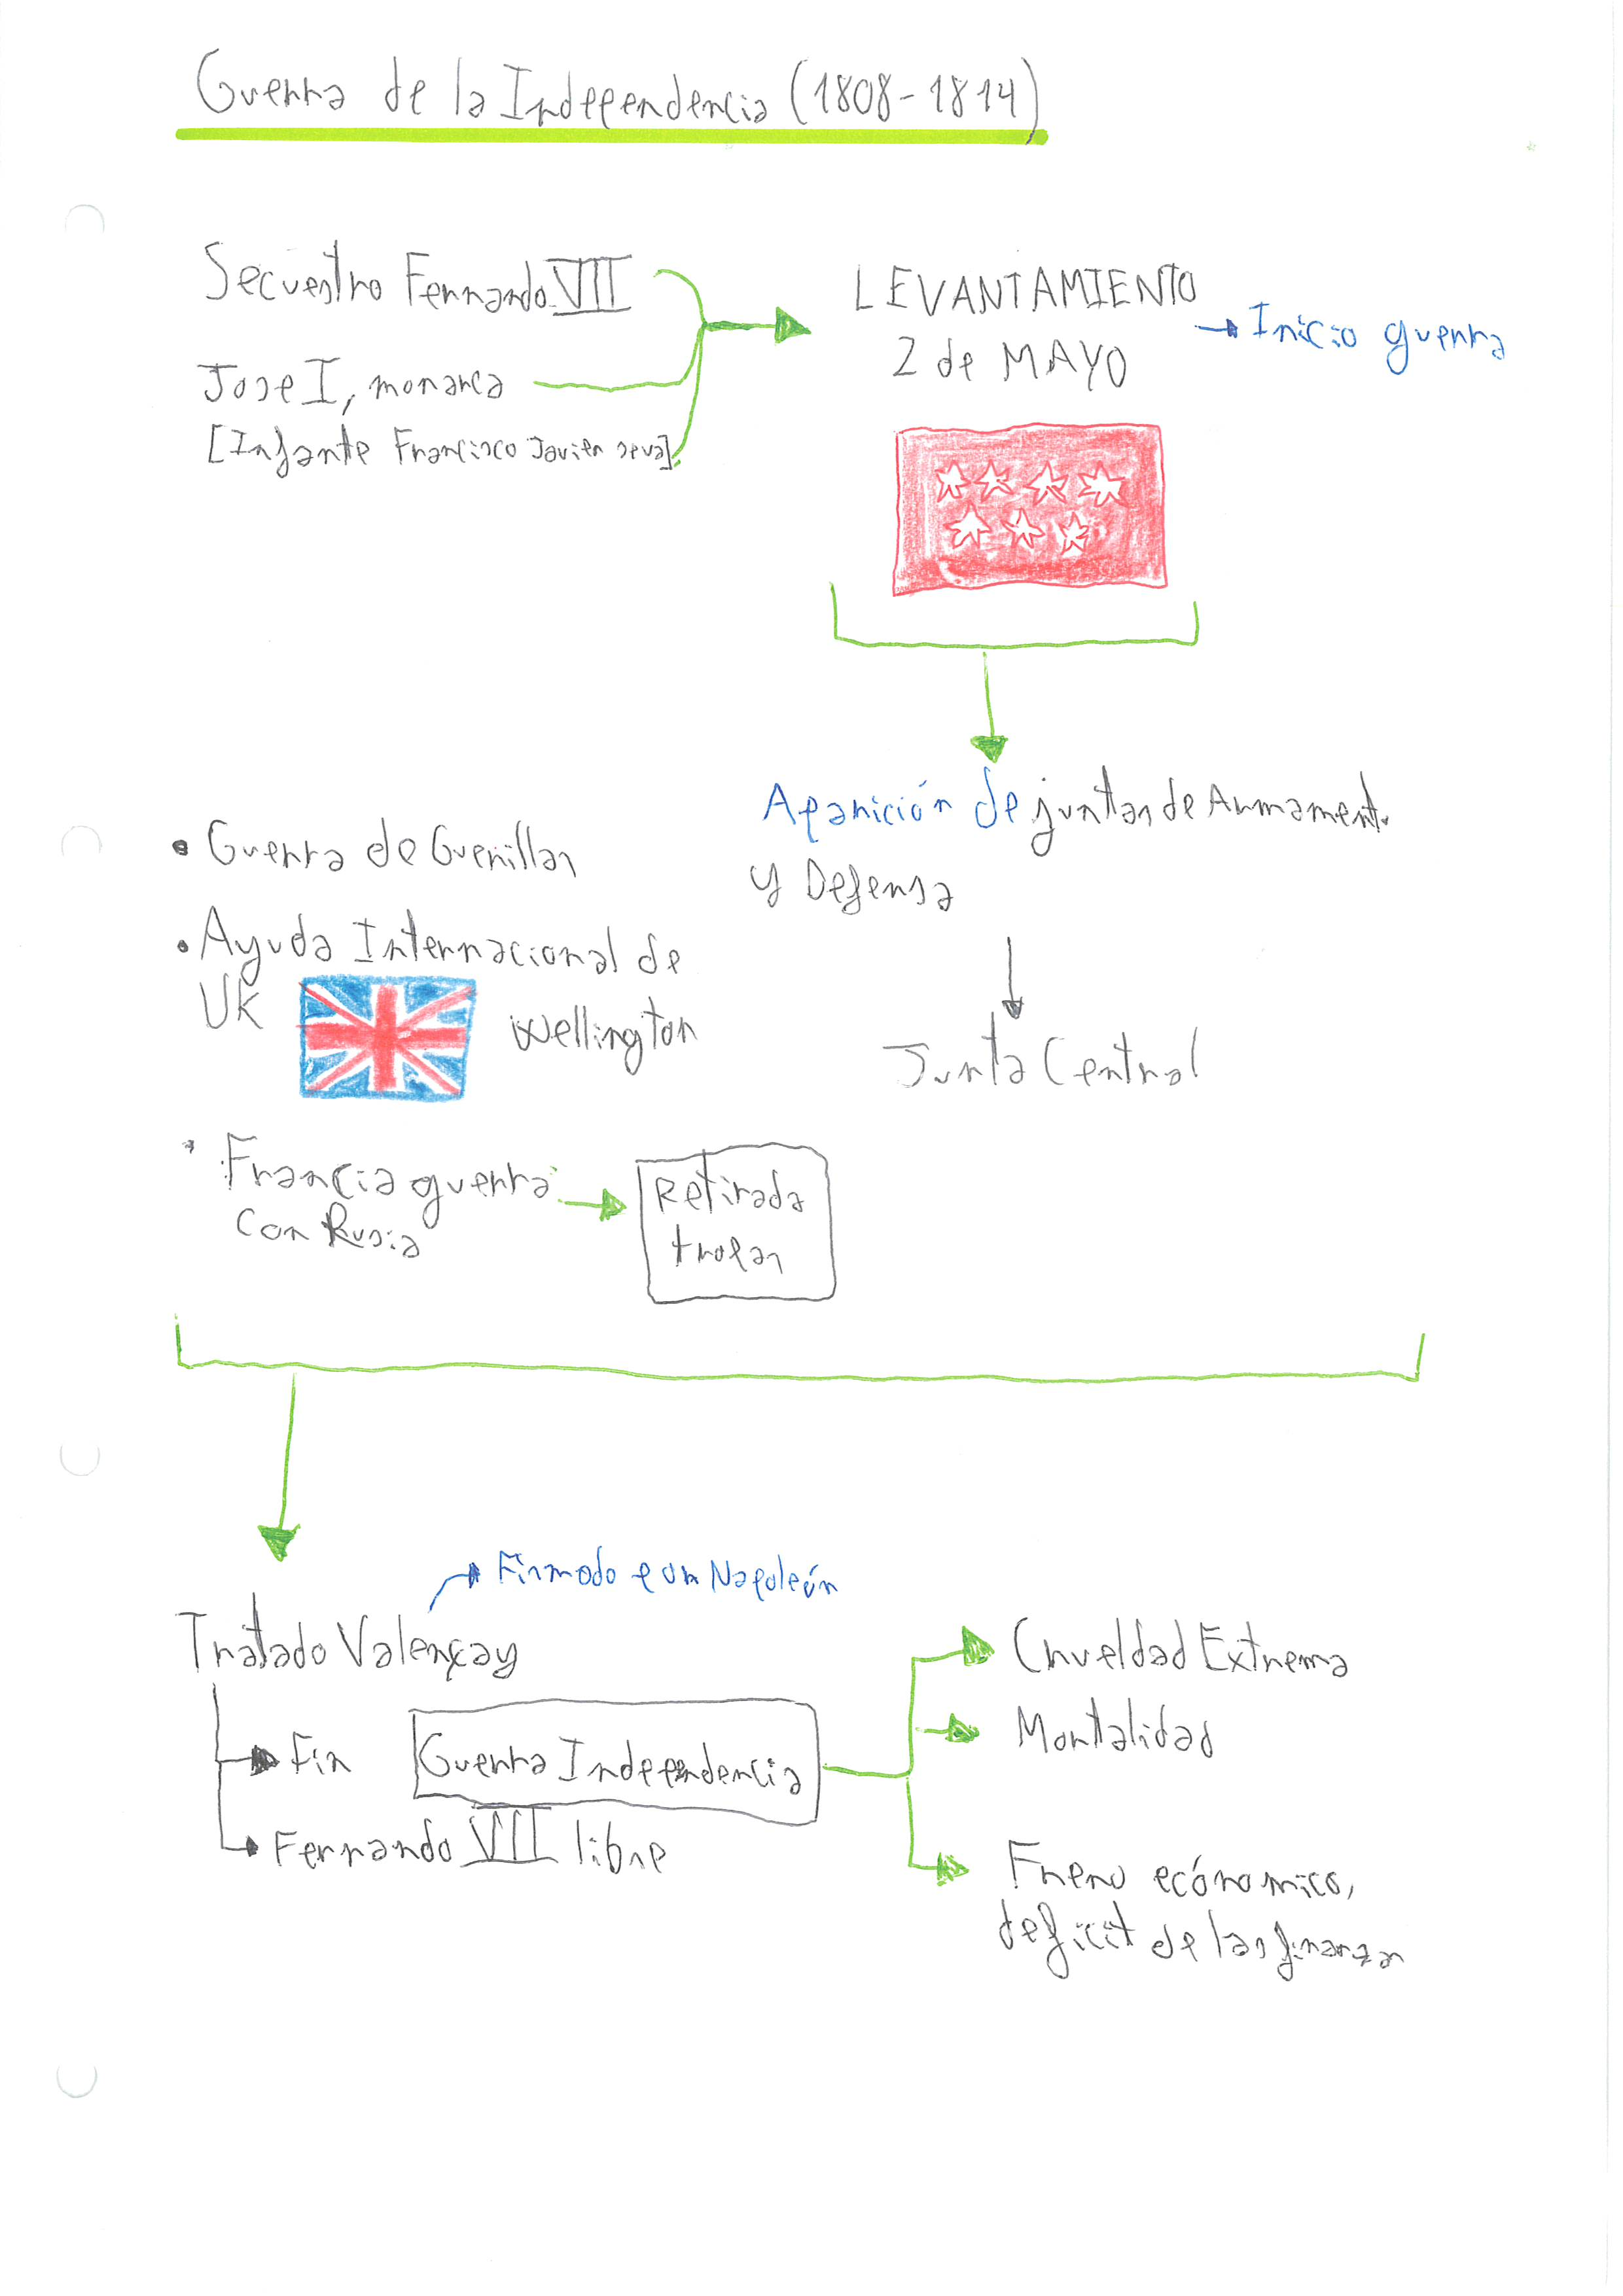 Guerra de la Independencia (1808-1814)
Secuestro Fernando VII
Jose I, monarca
[Infante Francisco Javier seva]
LEVANTAMIENTO
2 de MAYO
→ Inicio guerra
Aparición de juntas de Armamento
y Defensa
Junta Central
• Guerra de Guerillas
• Ayuda Internacional de
UK
Wellington
• Francia guerra
con Rusia
Retirada
tropas
Tratado Valençay
Firmado por Napoleón
Fin
Guerra Independencia
Fernando VII libre
Crueldad Extrema
Mortalidad
Freno ecónomico,
deficit de las finanzas